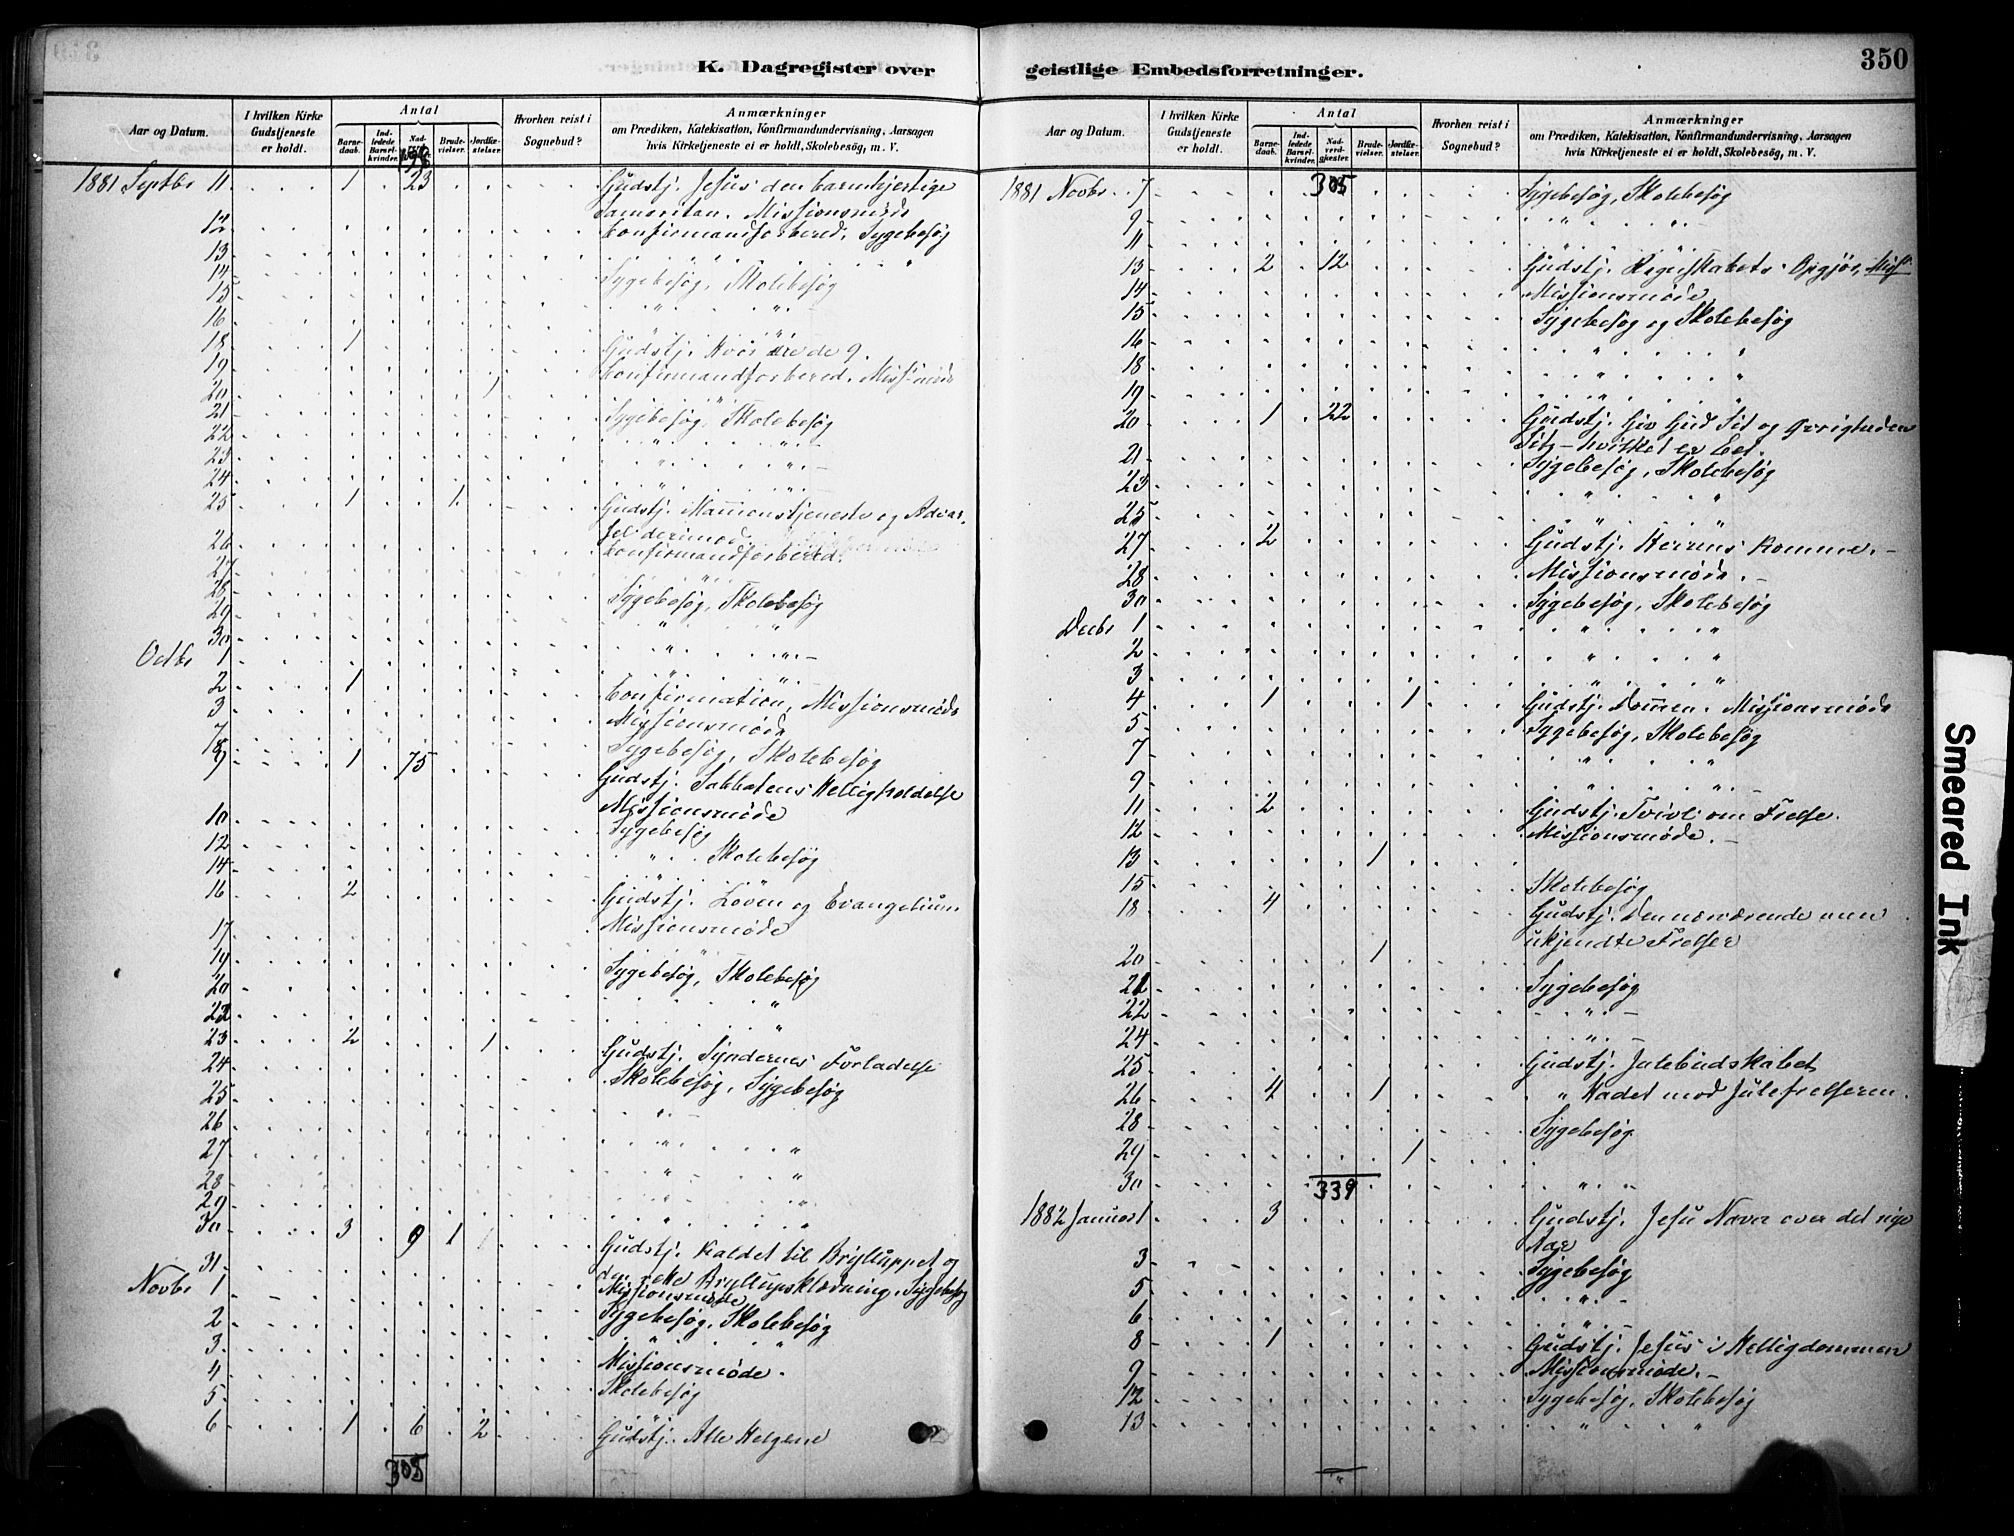 K. Dagregister over
Aar og Datum.
I hvilken Kirke Gudstjeneste er holdt.
Antal
Barne-daab.
Ind-ledede Barsel-kvinder.
Brude-vielser.
Jordfæ-stelser.
Hvorhen reist i Sognebud?
Anmærkninger
om Prædiken, Katekisation, Konfirmandundervisning, Aarsagen
hvis Kirketjeneste ei er holdt, Skolebesøg, m. V.
1881 Septbr 11 1 23 Gudstj. Jesus den barmhjertige
Samaritan. Missionsmøde
12 Confirmandforbered. Sygebesøg
13 " "
14 Sygebesøg, Skolebesøg
15 " "
16 " "
18 1 Gudstj. Hvor ere de 9.
19 Confirmandforbered. Miss.møde
20 1 "
21 Sygebesøg, Skolebesøg
22 " "
23 " "
24 " "
25 1 1 Gudstj. Mammonstjeneste og Advar-
sel derimod
26 Confirmandforbered.
27 "
28 Sygebesøg, Skolebesøg
29 " "
30 " "
Octbr 1 " "
2 1 Confirmation, Missionsmøde
3 Missionsmøde
7 Sygebesøg, Skolebesøg
9 1 75 Gudstj. Sabbatens Helligholdelse
Missionsmøde
10 Sygebesøg
12 " Skolebesøg
14 " "
16 2 Gudstj. Loven og Evangelium
Missionsmøde
17 "
19 Sygebesøg, Skolebesøg
20 "
22 "
23 2 1 Gudstj. Syndernes Forladelse
24 Skolebesøg, Sygebesøg
25 "
26 " "
27 " "
28 " "
29 "
30 3 9 1 Gudstj. Kaldet til Brylluppet og
Bryllupsklædning. Sygebesøg
31 Missionsmøde
Novbr 1 Sygebesøg, Skolebesøg
2 " "
3 Missionsmøde.
4 Skolebesøg
5 "
6 1 6 2 Gudstj. Alle Helgene
305
geistlige Embedsforretninger.
350
Aar og Datum.
I hvilken Kirke Gudstjeneste er holdt.
Antal
Barne-daab.
Ind-ledede Barsel-kvinder.
Nad-verd-gjester.
Brude-vielser.
Jordfæ-stelser.
Hvorhen reist i Sognebud?
Anmærkninger
om Prædiken, Katekisation, Konfirmandundervisning, Aarsagen
hvis Kirketjeneste ei er holdt, Skolebesøg, m. V.
305
1881 Novbr. 7 Sygebesøg, Skolebesøg
9 " "
11 " "
13 2 12 Gudstj. Regnskabets Opgjør,
14 Missionsmøde
15 Sygebesøg og Skolebesøg
16 " "
18 " "
19 " "
20 1 22 Gudstj. Giv Gud Sit og Øvrigheden
Sit – hvilket er Eet.
21 Sygebesøg, Skolebesøg
23 " "
25 " "
27 2 Gudstj. Herrens Komme.
28 Missionsmøde.
30 Sygebesøg, Skolebesøg
Decbr 1 " "
2 " "
3 " "
4 1 1 Gudstj. Dommen. Missionsmøde
5 Sygebesøg, Skolebesøg
7 " "
9 " "
11 2 Gudstj. Tvivl om Frelse.
12 Missionsmøde.
13 1
15 Skolebesøg
18 4 Gudstj. Den nærværende men
ukjendte Frelser
20 1
21 Sygebesøg
22 "
24 "
25 Gudstj. Julebudskabet
26 4 1 " Hadet mod Julefrelseren.
28 Sygebesøg
29 1
30 " "
339
1882 Januar 1 3 Gudstj. Jesu Navn over det nye
Aar
3 Sygebesøg
5 "
6 "
8 1 Gudstj. Jesus i Helligdommen
9 Missionsmøde.
12 Sygebesøg, Skolebesøg
13 " "
Smeared Ink